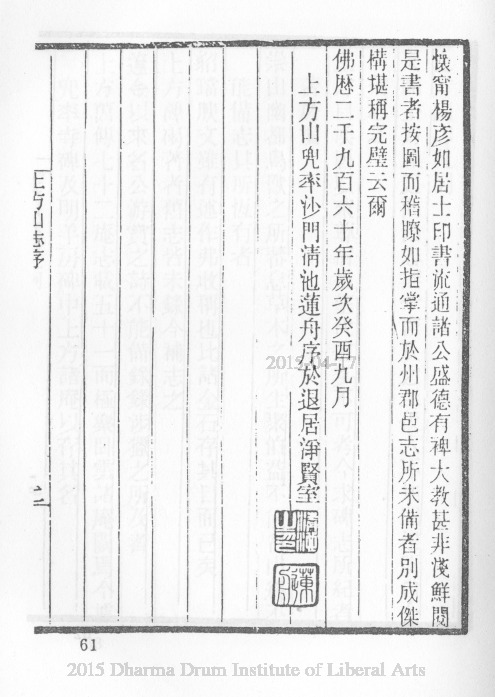 懷甯楊彥如居士印書流通諸公盛德有裨大教甚非淺鮮閱
是書者按圖而稽瞭如指掌而於州郡邑志所未備者別成傑
構堪稱完璧云爾
佛曆二千九百六十年歲次癸酉九月
上方山兜率沙門清池蓮舟序於退居淨賢室
上方山志序
2015-04-17
61
2015 Dharma Drum Institute of Liberal Arts